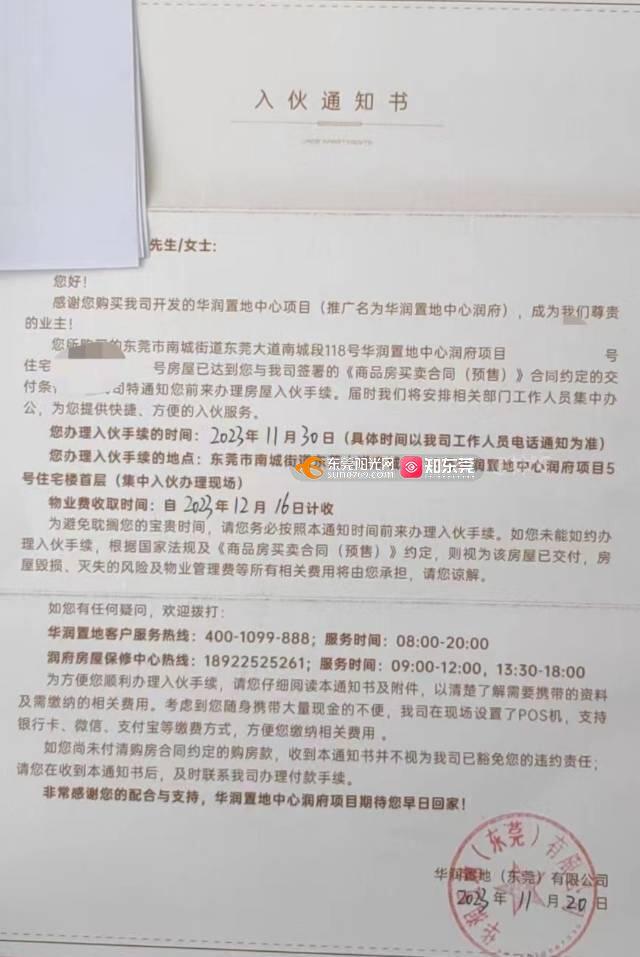 入伙通知书
先生/女士：
您好！
感谢您购买我司开发的华润置地中心项目（推广名为华润置地中心润府），成为我们尊贵
的业主！
您所购买的东莞市南城街道东莞大道南城段118号华润置地中心润府项目 号
住宅 号房屋已达到您与我司签署的《商品房买卖合同（预售）》合同约定的交
付条 司特通知您前来办理房屋入伙手续。届时我们将安排相关部门工作人员集中办
公，为您提供快捷、方便的入伙服务。
您办理入伙手续的时间：2023年11月30日（具体时间以我司工作人员电话通知为准）
您办理入伙手续的地点：东莞市南城街道东 润置地中心润府项目5
东莞阳光网
sun0769.com
知东莞
号住宅楼首层（集中入伙办理现场）
物业费收取时间：自2023年12月16日计收
为避免耽搁您的宝贵时间，请您务必按照本通知时间前来办理入伙手续。如您未能如约办
理入伙手续，根据国家法规及《商品房买卖合同（预售）》约定，则视为该房屋已交付，房
屋毁损、灭失的风险及物业管理费等所有相关费用将由您承担，请您谅解。
如您有任何疑问，欢迎拨打：
华润置地客户服务热线：400-1099-888；服务时间：08:00-20:00
润府房屋保修中心热线：18922525261；服务时间：09:00-12:00，13:30-18:00
为方便您顺利办理入伙手续，请您仔细阅读本通知书及附件，以清楚了解需要携带的资料
及需缴纳的相关费用。考虑到您随身携带大量现金的不便，我司在现场设置了POS机，支持
银行卡、微信、支付宝等缴费方式，方便您缴纳相关费用 。
如您尚未付清购房合同约定的购房款，收到本通知书并不视为我司已豁免您的违约责任；
请您在收到本通知书后，及时联系我司办理付款手续。
非常感谢您的配合与支持，华润置地中心润府项目期待您早日回家！
华润置地（东莞）有限公司
2023年11月20日
（东莞）有限